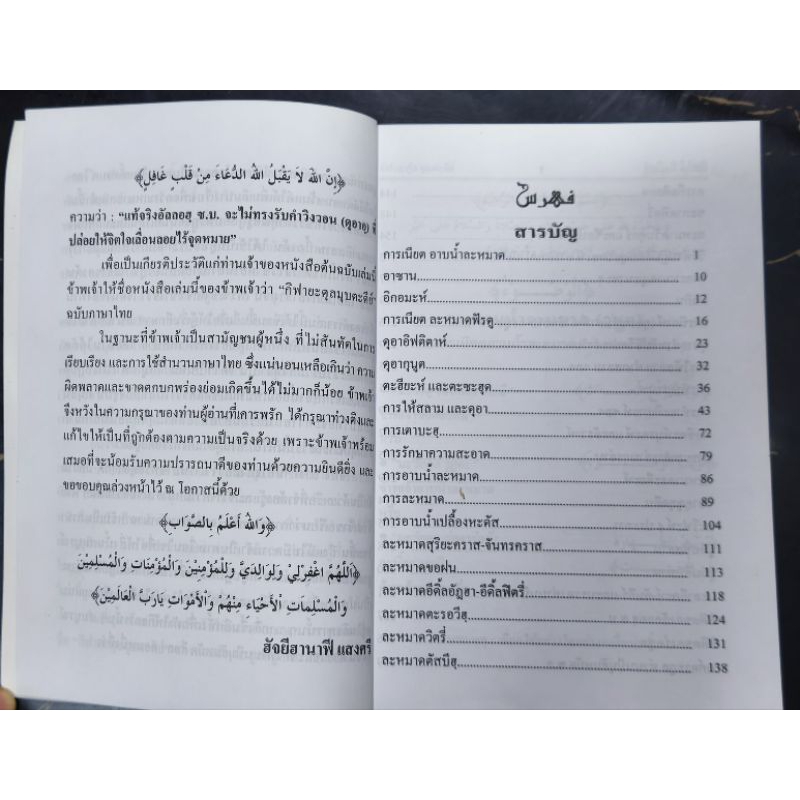 ﴿إِنَّ اللهَ لاَ يَقْبَلُ اللهُ الدُّعَاءَ مِنْ قَلْبٍ غَافِلٍ﴾
ความว่า : "แท้จริงอัลลอฮฺ ซ.บ. จะไม่ทรงรับคำวิงวอน (ดุอาอฺ)
ปล่อยให้จิตใจเลื่อนลอยไร้จุดหมาย"
เพื่อเป็นเกียรติประวัติแก่ท่านเจ้าของหนังสือต้นฉบับเล่มนี้
ข้าพเจ้าให้ชื่อหนังสือเล่มนี้ของข้าพเจ้าว่า "กิฟายะตุลมุบตะดีอ์
ฉบับภาษาไทย
ในฐานะที่ข้าพเจ้าเป็นสามัญชนผู้หนึ่ง ที่ไม่สันทัดในการ
เรียบเรียง และการใช้สำนวนภาษาไทย ซึ่งแน่นอนเหลือเกินว่า ความ
ผิดพลาดและขาดตกบกพร่องย่อมเกิดขึ้นได้ไม่มากก็น้อย ข้าพเจ้า
จึงหวังในความกรุณาของท่านผู้อ่านที่เคารพรัก ได้กรุณาท่วงติงและ
แก้ไขให้เป็นที่ถูกต้องตามความเป็นจริงด้วย เพราะข้าพเจ้าพร้อม
เสมอที่จะน้อมรับความปรารถนาดีของท่านด้วยความยินดียิ่ง และ
ขอขอบคุณล่วงหน้าไว้ ณ โอกาสนี้ด้วย
﴿وَاللهُ أَعْلَمُ بِالصَّوَابِ﴾
﴿اَللّٰهُمَّ اغْفِرْلِيْ وَلِوَالِدَيَّ وَلِلْمُؤْمِنِيْنَ وَالْمُؤْمِنَاتِ وَالْمُسْلِمِيْنَ
وَالْمُسْلِمَاتِ اَلْأَحْيَاءِ مِنْهُمْ وَاْلأَمْوَاتِ يَارَبَّ الْعَالَمِيْنَ﴾
ฮัจยีฮานาฟี แสงศรี
فهرس
สารบัญ
การเนียต อาบน้ำละหมาด 1
อาซาน 10
อิกอมะห์ 12
การเนียต ละหมาดฟัรดู 16
ดุอาอิฟติตาห์ 23
ดุอากุนูต 32
ตะฮียะห์ และตะชะฮุด 36
การให้สลาม และดุอา 43
การเตาบะฮุ 72
การรักษาความสะอาด 79
การอาบน้ำละหมาด 86
การละหมาด 89
การอาบน้ำเปลื้องหะดัส 104
ละหมาดสุริยะคราส-จันทรคราส 111
ละหมาดขอฝน 113
ละหมาดอีดิ้ลอัฎฮา-อีดิ้ลฟิตรี่ 118
ละหมาดตะรอวีฮุ 124
ละหมาดวิตรี่ 131
ละหมาดตัสบีฮุ 138